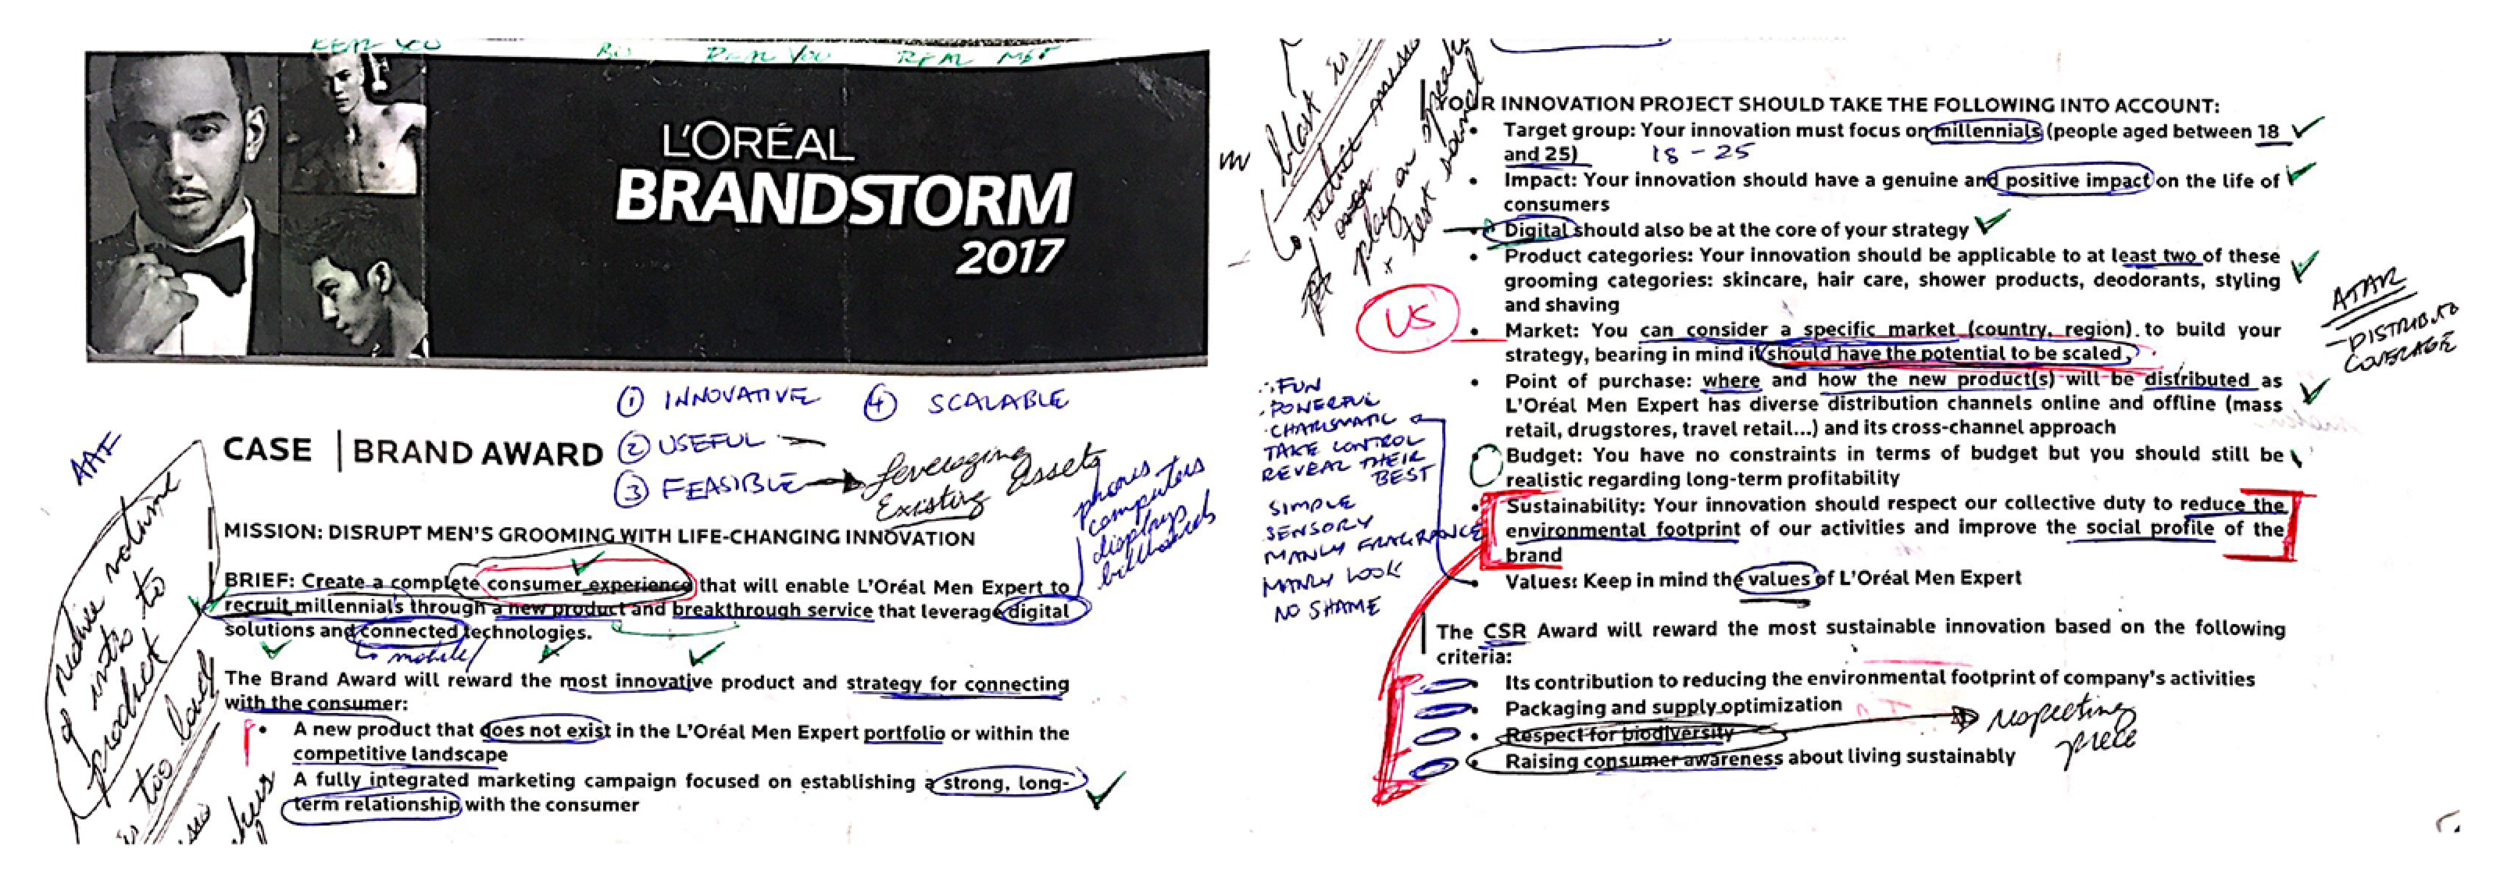 REAL YOU
REAL YOU REAL ME
L'ORÉAL
BRANDSTORM
2017
① INNOVATIVE ④ SCALABLE
② USEFUL
③ FEASIBLE → Leveraging
Existing Assets
phones
computers
displays
billboards
AAF
CASE | BRAND AWARD
MISSION: DISRUPT MEN'S GROOMING WITH LIFE-CHANGING INNOVATION
BRIEF: Create a complete consumer experience that will enable L'Oréal Men Expert to
recruit millennials through a new product and breakthrough service that leverage digital
solutions and connected technologies.
mobile
The Brand Award will reward the most innovative product and strategy for connecting
with the consumer:
• A new product that does not exist in the L'Oréal Men Expert portfolio or within the
competitive landscape
• A fully integrated marketing campaign focused on establishing a strong, long-
term relationship with the consumer
volume
into to
product
is too loud
YOUR INNOVATION PROJECT SHOULD TAKE THE FOLLOWING INTO ACCOUNT:
• Target group: Your innovation must focus on millennials (people aged between 18
and 25) 18-25
• Impact: Your innovation should have a genuine and positive impact on the life of
consumers
• Digital should also be at the core of your strategy
• Product categories: Your innovation should be applicable to at least two of these
grooming categories: skincare, hair care, shower products, deodorants, styling
and shaving
US
• Market: You can consider a specific market (country, region) to build your
strategy, bearing in mind it should have the potential to be scaled.
• Point of purchase: where and how the new product(s) will be distributed as
L'Oréal Men Expert has diverse distribution channels online and offline (mass
retail, drugstores, travel retail...) and its cross-channel approach
• Budget: You have no constraints in terms of budget but you should still be
realistic regarding long-term profitability
• Sustainability: Your innovation should respect our collective duty to reduce the
environmental footprint of our activities and improve the social profile of the
brand
• Values: Keep in mind the values of L'Oréal Men Expert
ATAR
COVERAGE
FUN
POWERFUL
CHARISMATIC
TAKE CONTROL
REVEAL THEIR
BEST
SIMPLE
SENSORY
MANLY FRAGRANCE
MANLY LOOK
NO SHAME
The CSR Award will reward the most sustainable innovation based on the following
criteria:
• Its contribution to reducing the environmental footprint of company's activities
• Packaging and supply optimization
• Respect for biodiversity
• Raising consumer awareness about living sustainably
respecting